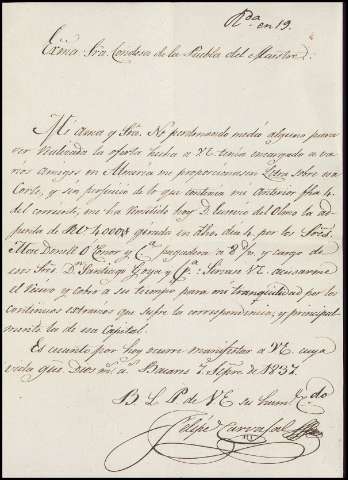 R.da en 19.
Exma. Sra. Condesa de la Puebla del Maestre:
Mi ama y Sra. No perdonando medio alguno para
ver realizada la oferta hecha a VE tenia encargado a va
rios amigos en Almeria me proporcionasen Letra sobre esa
Corte, y sin perjuicio de lo que contenia mi anterior fha 4.
del corriente, me ha remitido hoy D. del Olmo la ad
junta de Rvn 4000 girada en dho. dia 4, por los Sres.
O Conor y Ca. pagadera a 8 d/v. y cargo de
esos Sres. Dn. Santiago y Ca. Sirvase VE. acusarme
el recivo y cobro a su tiempo para mi tranquilidad por los
continuos estravios que sufre la correspondencia, y principal
mente la de esa Capital.
Es cuanto por hoy ocurre manifestar a VE cuya
vida gue. Dios ms. as. 7. Sepre. de 1837.
B L P de VE su hum.
Felipe Carvajal